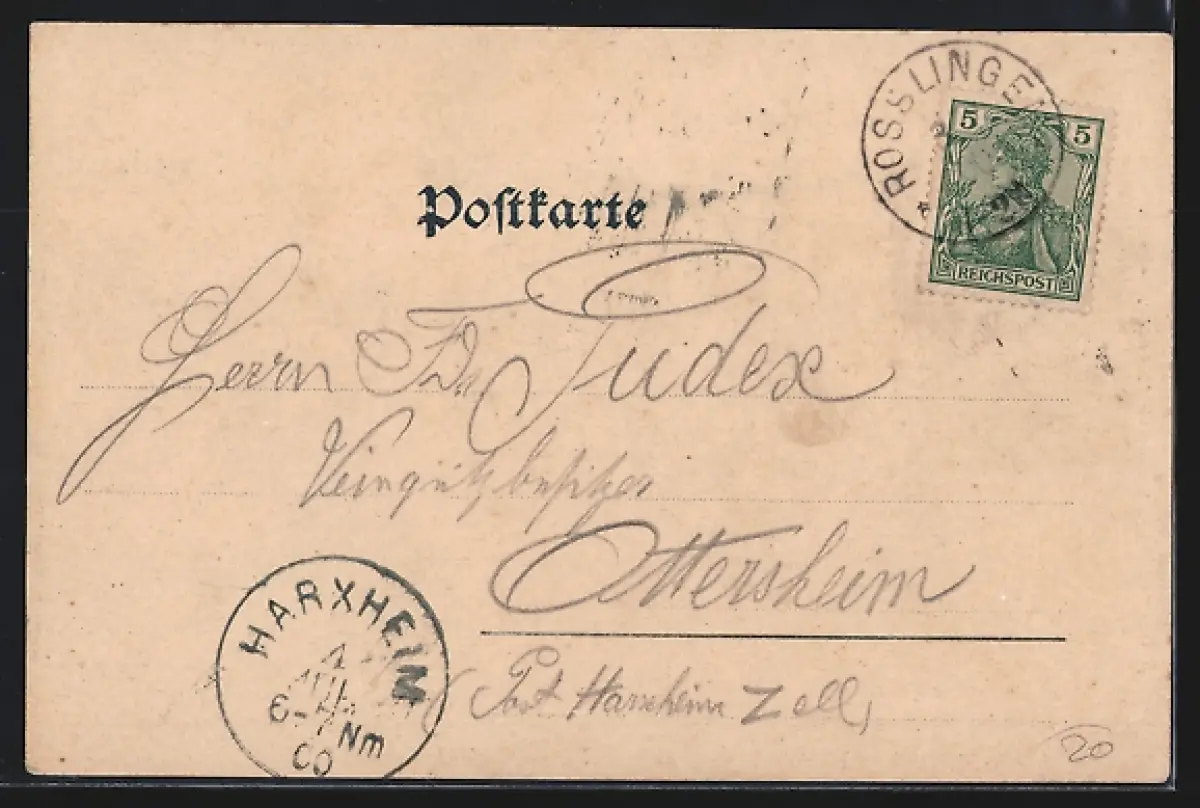 ROSSLINGEN
5 5
REICHSPOST
Postkarte
Herrn Fr. Pudex
Weingutsbesitzer
Ottersheim
(Post Harxheim Zell,
HARXHEIM
1
6-7 Nm
00
20